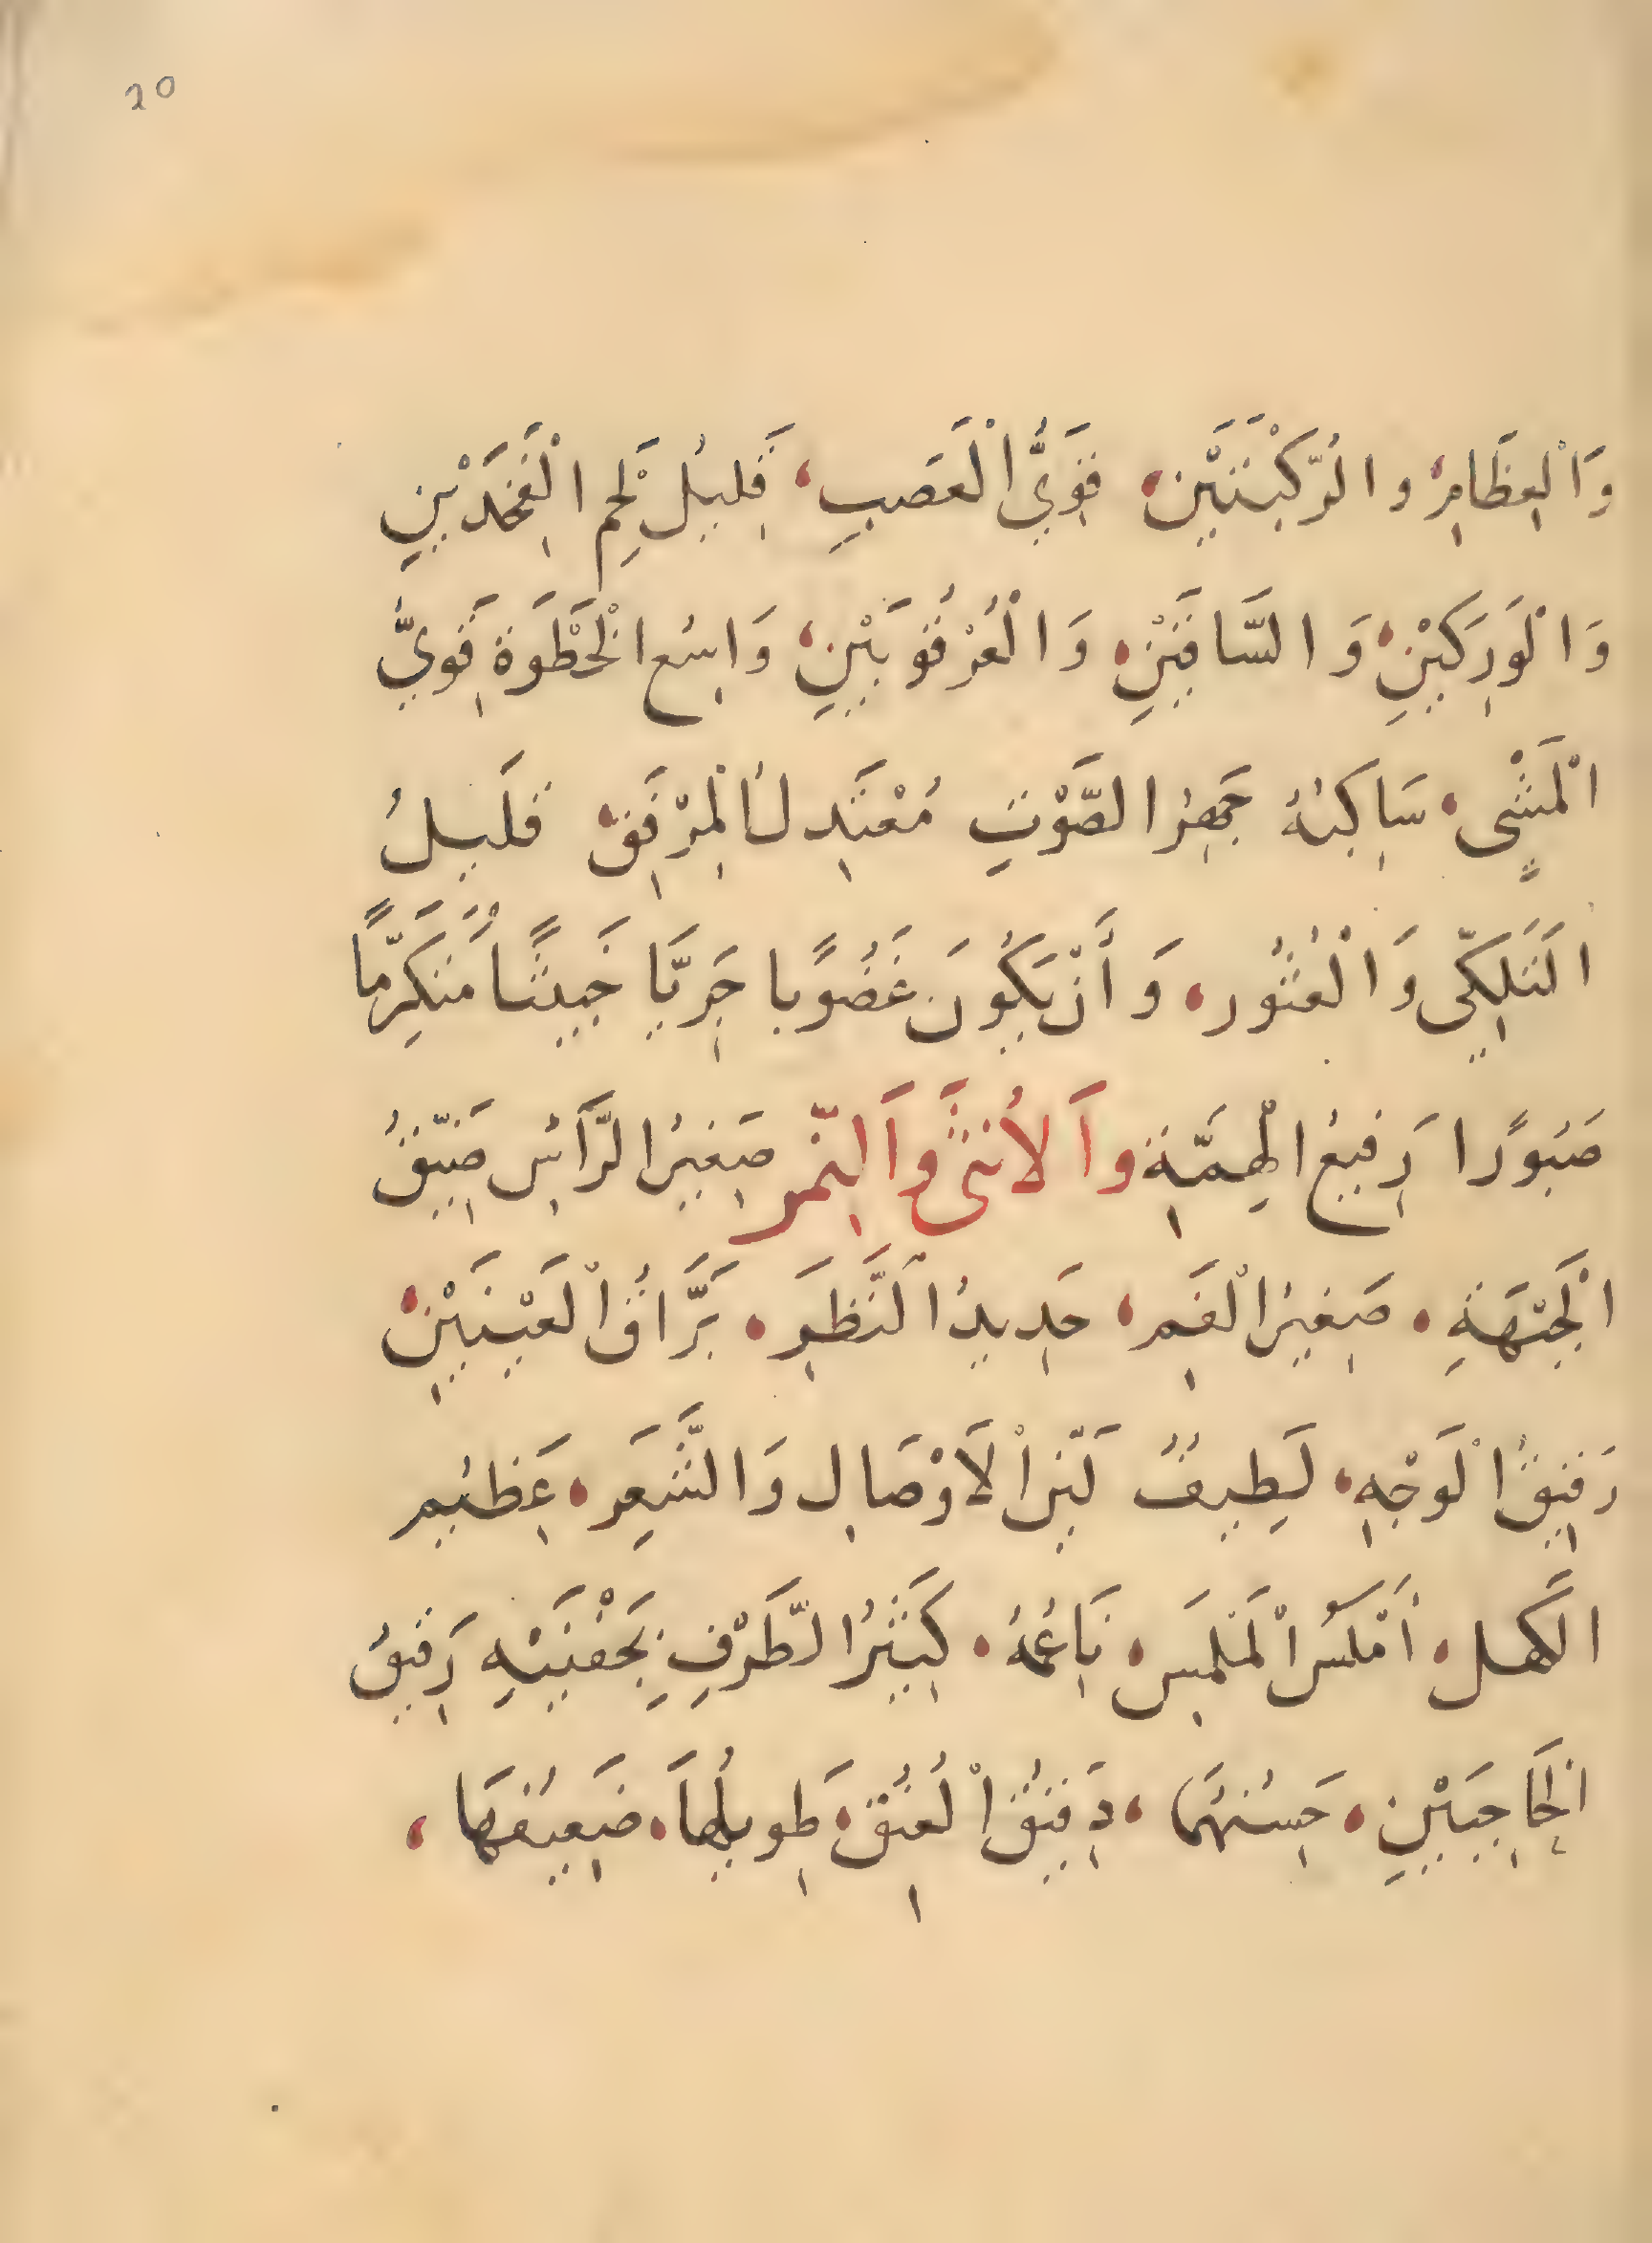 20
وَالْعِظَامِ، والرُّكْبَتَيْنِ، قَوِيُّ الْعَصَبِ، قَلِيلُ لَحْمِ الْفَخِذَيْنِ
وَالْوَرِكَيْنِ، وَالسَّاقَيْنِ، وَالْعُرْقُوبَيْنِ، وَاسِعُ الْخَطْوَةِ قَوِيُّ
الْمَشْيِ، سَاكِنُهُ جَهِيرُ الصَّوْتِ مُعْتَدِلُ الْمِرْفَقِ، قَلِيلُ
التَلَكِّي وَالْعُثُورِ، وَأَنْ يَكُونَ غَضُوبًا جَرِيًّا خَبِيثًا مُتَكَرِّمًا
صَبُورًا رَفِيعُ الْهِمَّةِ وَالأُنثَى وَالنِّمر صَغِيرُ الرَّأسِ ضَيِّقُ
الْجَبْهَةِ، صَغِيرُ الْفَمِ، حَدِيدُ النَّظَرِ، بَرَّاقُ الْعَيْنَيْنِ،
رَقِيقُ الْوَجْهِ، لَطِيفُ لَيِّنُ الْأَوْصَالِ وَالشَّعَرِ، عَظِيم
الكَهل، أَمْلَسُ الْمَلْمَسِ، نَاعُمهُ، كَثِيرُ الطَّرْفِ بِجَفْنَيْهِ رَقِيقُ
الْحَاجِبَيْنِ، حَسَنُهُمَا، دَقِيقُ الْعُنُقِ، طَوِيلُهَا، ضَعِيفُهَا،